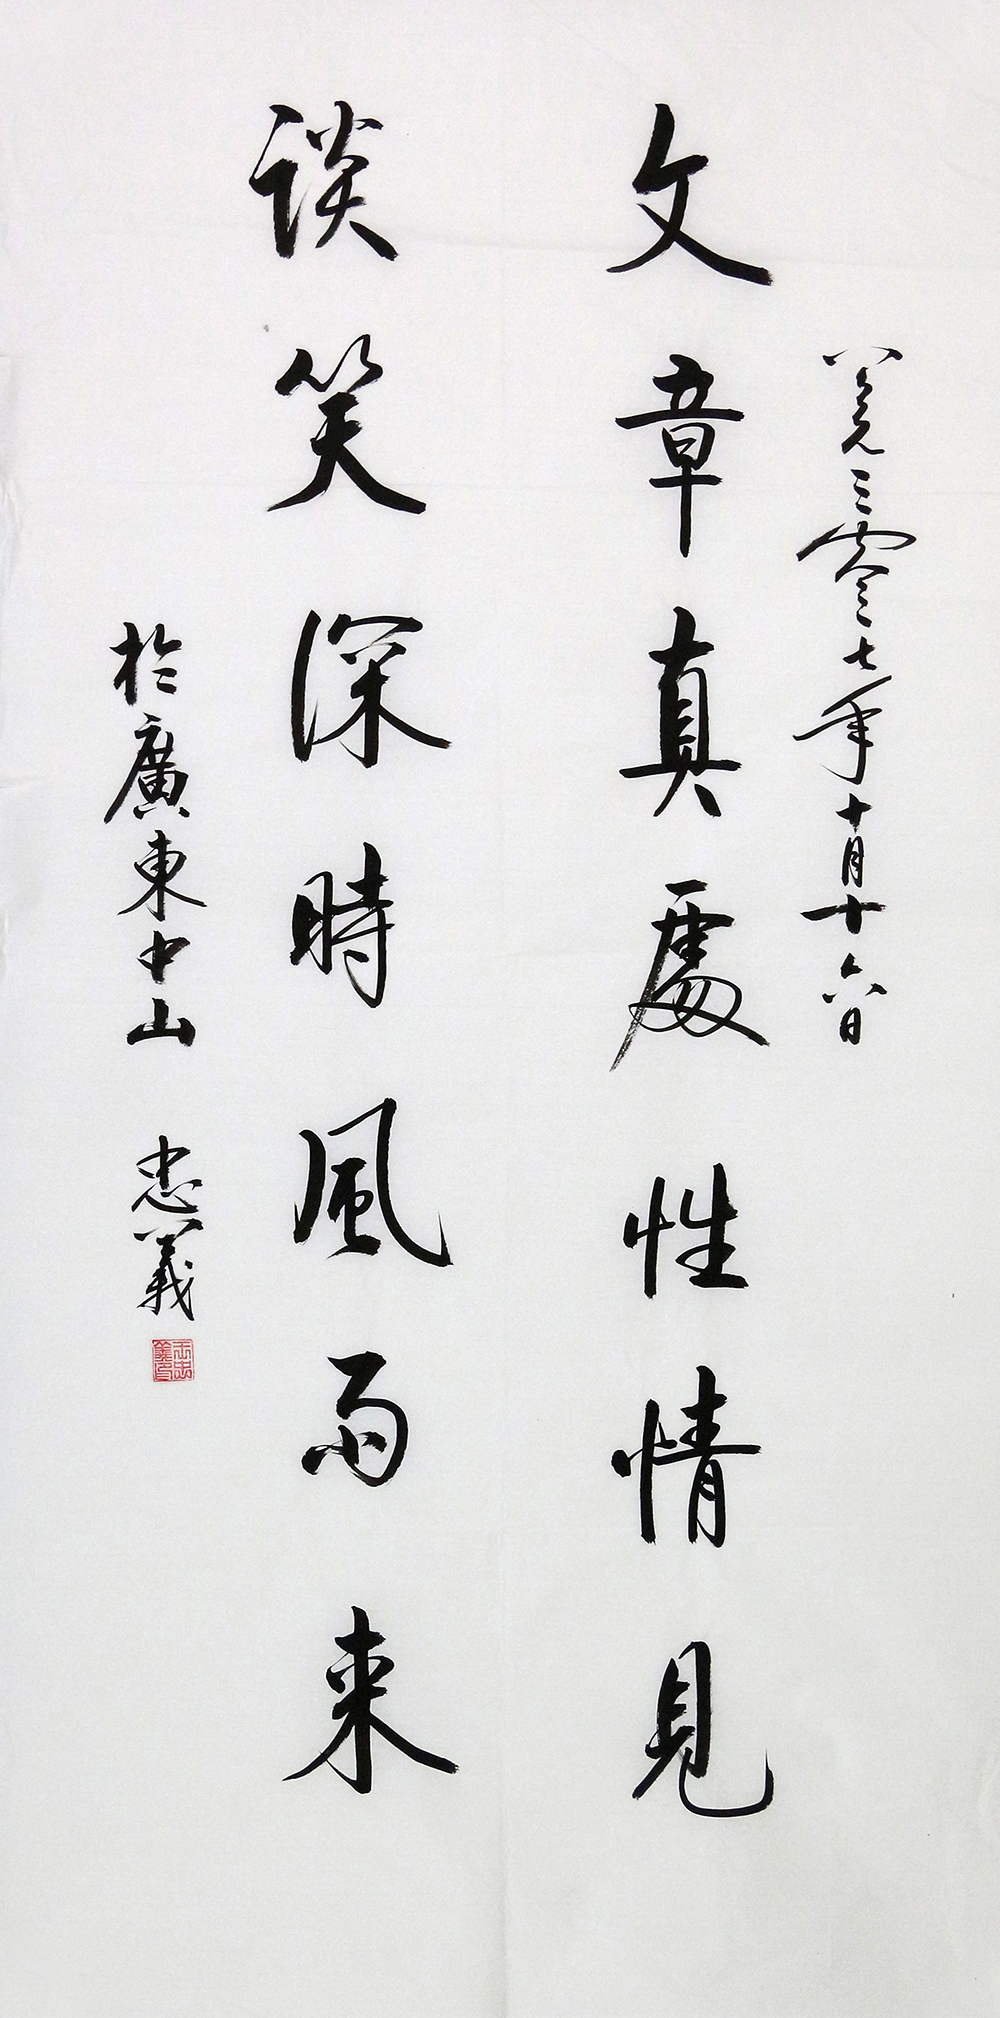 公元二零一七年十月十六日
文章真處性情見
談笑深時風雨來
於廣東中山 忠義